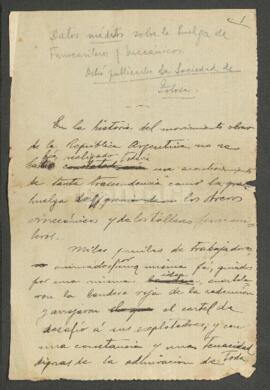 1
Datos inéditos sobre la huelga de
Ferrocarrileros y Mecánicos.
Debió publicarlos La Sociedad de
En la historia del movimiento obrero
de la República Argentina no se
ha realizado todavía
un acontecimiento
de tanta trascendencia como la gran
huelga de los obreros
mecánicos y de los talleres ferrocarri-
leros.
Miles y miles de trabajadores
animados por una misma fe, guiados
por una misma idea,
con la bandera roja de la redención
y arrojaron el cartel de
desafío á sus explotadores, y con
una constancia y una tenacidad
dignas de la admiración de toda